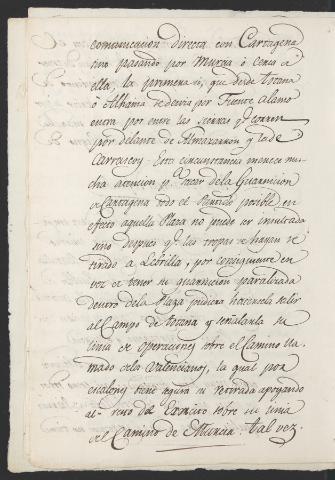 comunicacion directa con Cartagena
sino pasando por Murcia ó cerca de
ella, la primera si, que desde Totana
ó Alhama se desvia por Fuente Alamo
entra por entre las sierras qe. corren
por delante de Almazarron y la de
Carrascoy. Esta circunstancia merece mu-
cha atencion pa. sacar de la Guarnicion
de Cartagena todo el Partido posible, en
efecto aquella Plaza no puede ser insultada
sino despues qe. las tropas se hayan re-
tirado a Lebrilla, por consiguiente en
vez de tener su guarnicion paralizada
dentro de la Plaza pudiera hacersela salir
al Campo de Totana y señalarla su
linia de operaciones sobre el Camino lla-
mado de los Valencianos, la qual por
escalones tiene segura su retirada apoyando
al resto del Exercito sobre su linia
del Camino de Murcia. Tal vez.